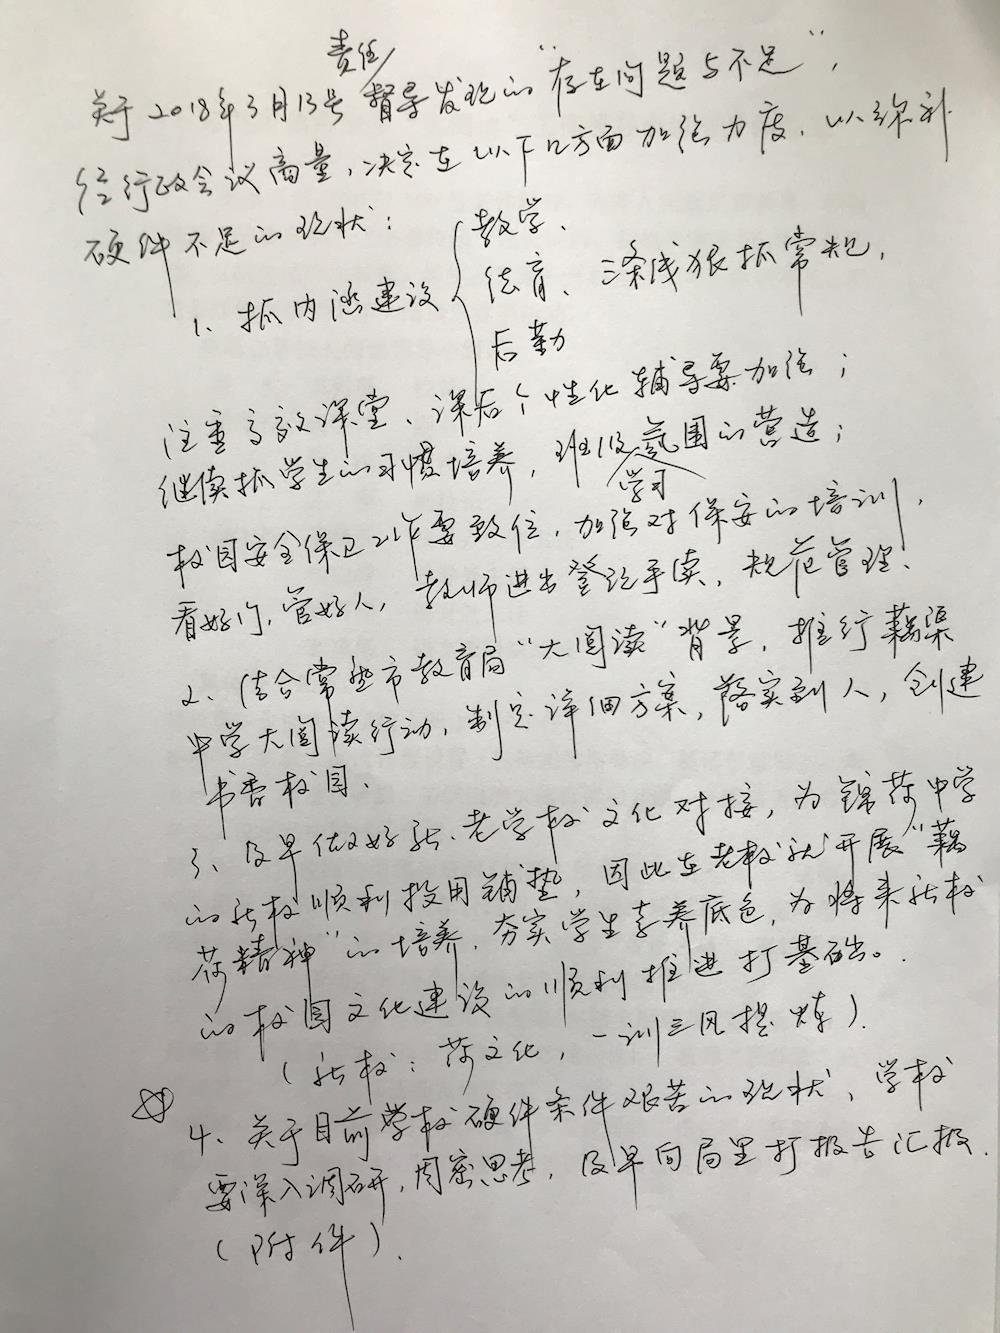 责任
关于2018年3月13号督导发现的“存在问题与不足”，
经行政会议商量，决定在以下几方面加强力度，以弥补
硬件不足的现状：
1、抓内涵建设{教学、
德育、三条线狠抓常规，
后勤
注重高效课堂、课后个性化辅导要加强；
继续抓学生的习惯培养，班级氛围的营造；
学习
校园安全保卫工作要到位，加强对保安的培训，
看好门，管好人，教师进出登记手续，规范管理、
2、结合常熟市教育局“大阅读”背景，推行藕渠
中学大阅读行动，制定详细方案，落实到人，创建
书香校园、
3、及早做好新、老学校文化对接，为锦荷中学
的新校顺利投用铺垫，因此在老校就开展“藕
荷精神”的培养，夯实学生素养底色，为将来新校
的校园文化建设的顺利推进打基础。
（新校：荷文化，一训三风提炼）.
4、关于目前学校硬件条件艰苦的现状、学校
要深入调研，周密思考，及早向局里打报告汇报.
（附件）.